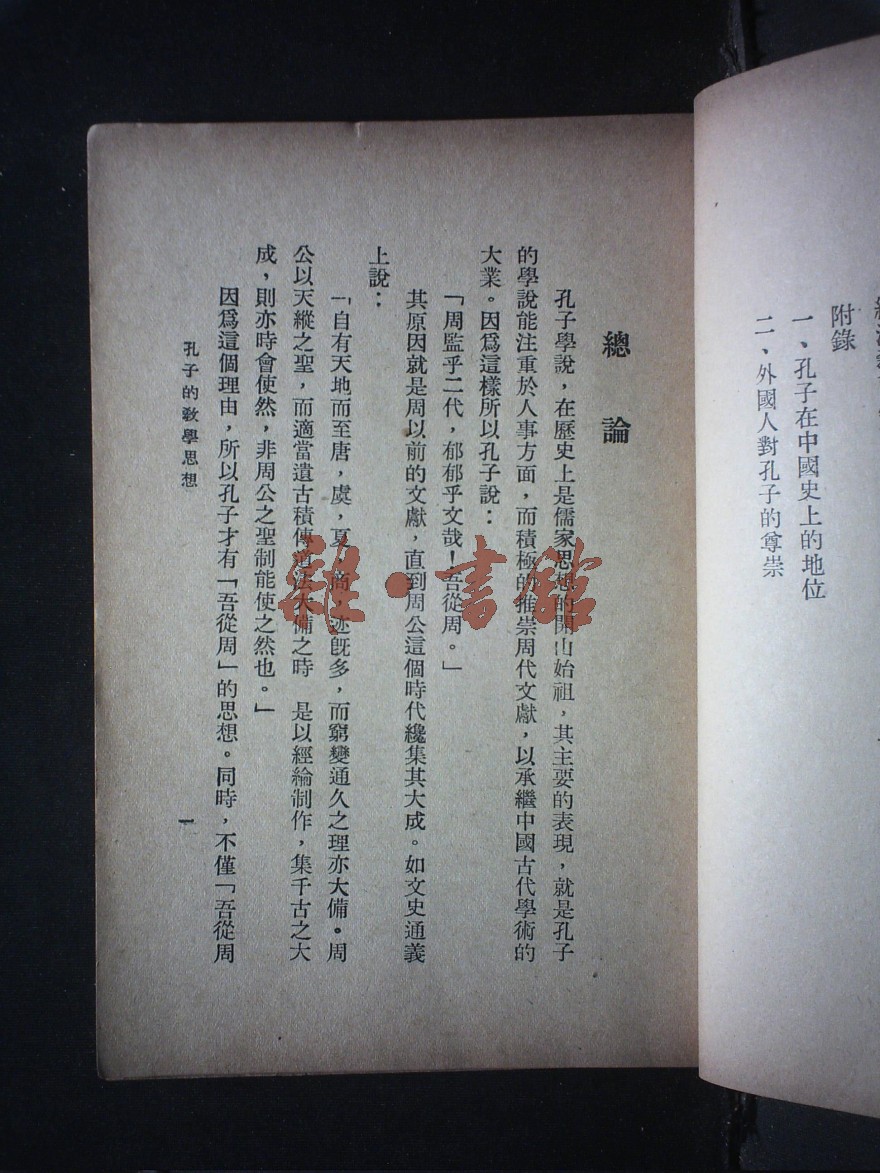 附錄
一、孔子在中國史上的地位
二、外國人對孔子的尊崇
總論
孔子學說，在歷史上是儒家思想的開山始祖，其主要的表現，就是孔子
的學說能注重於人事方面，而積極的推崇周代文獻，以承繼中國古代學術的
大業。因爲這樣所以孔子說：
「周監乎二代，郁郁乎文哉！吾從周。」
其原因就是周以前的文獻，直到周公這個時代纔集其大成。如文史通義
上說：
「自有天地而至唐，虞，夏，商，迹旣多，而窮變通久之理亦大備。周
公以天縱之聖，而適當遺古積傳道法大備之時　是以經綸制作，集千古之大
成，則亦時會使然，非周公之聖制能使之然也。」
因爲這個理由，所以孔子才有「吾從周」的思想。同時，不僅「吾從周
孔子的敎學思想
一
雜·書館